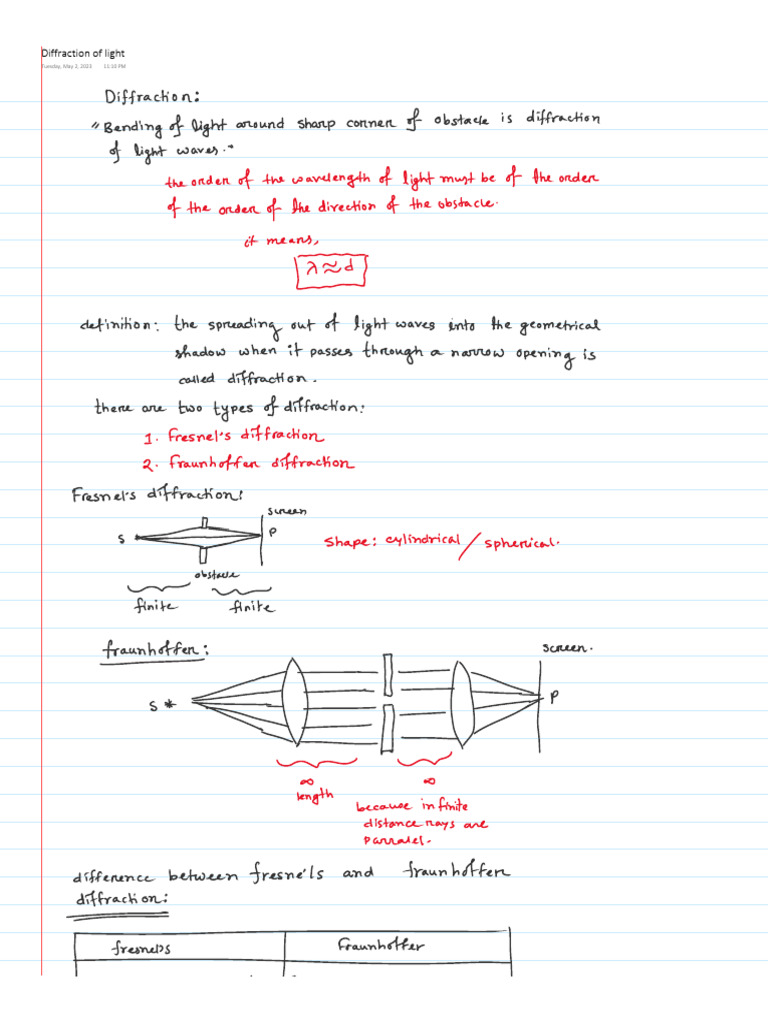 Diffraction of light
Tuesday, May 2, 2023 11:10 PM
Diffraction:
"Bending of light around sharp corner of obstacle is diffraction
of light waves."
the order of the wavelength of light must be of the order
of the order of the direction of the obstacle.
it means,
λ≈d
definition: the spreading out of light waves into the geometrical
shadow when it passes through a narrow opening is
called diffraction.
there are two types of diffraction:
1. Fresnel's diffraction
2. fraunhoffer diffraction
Fresnel's diffraction:
screen
S
P
shape: cylindrical / spherical.
obstacle
finite finite
fraunhoffer:
screen.
S *
P
∞ ∞
length
because infinite
distance rays are
parralel.
difference between fresnel's and fraunhoffer
diffraction:
fresnel's fraunhoffer